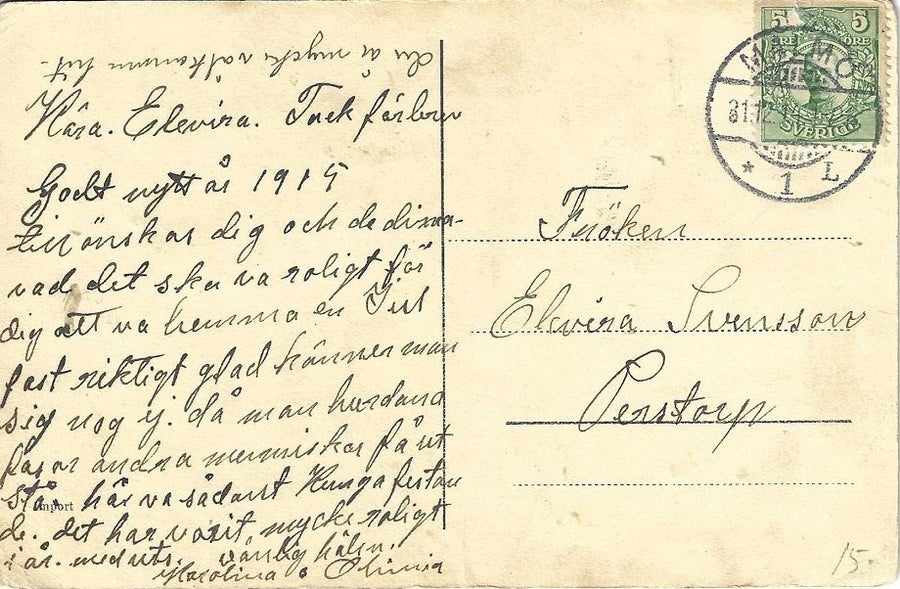 du är mycke välkommen hit.
Kära. Elevira. Tack förbrev
Godt nytt år 1915
tillönskas dig och de dina
vad det ska va roligt för
dig att va hemma en Jul
fast riktigt glad känner man
sig nog ej. då man hurdana
andra menniskor får ut
stå. här va sådant
de. det har varit mycke roligt
i år. vänlig hälsn.
Karolina o
Import
5 5
ÖRE ÖRE
SVERIGE
MALMÖ
31.12.
* 1 L
Fröken
Elvira Svensson
Perstorp
15.